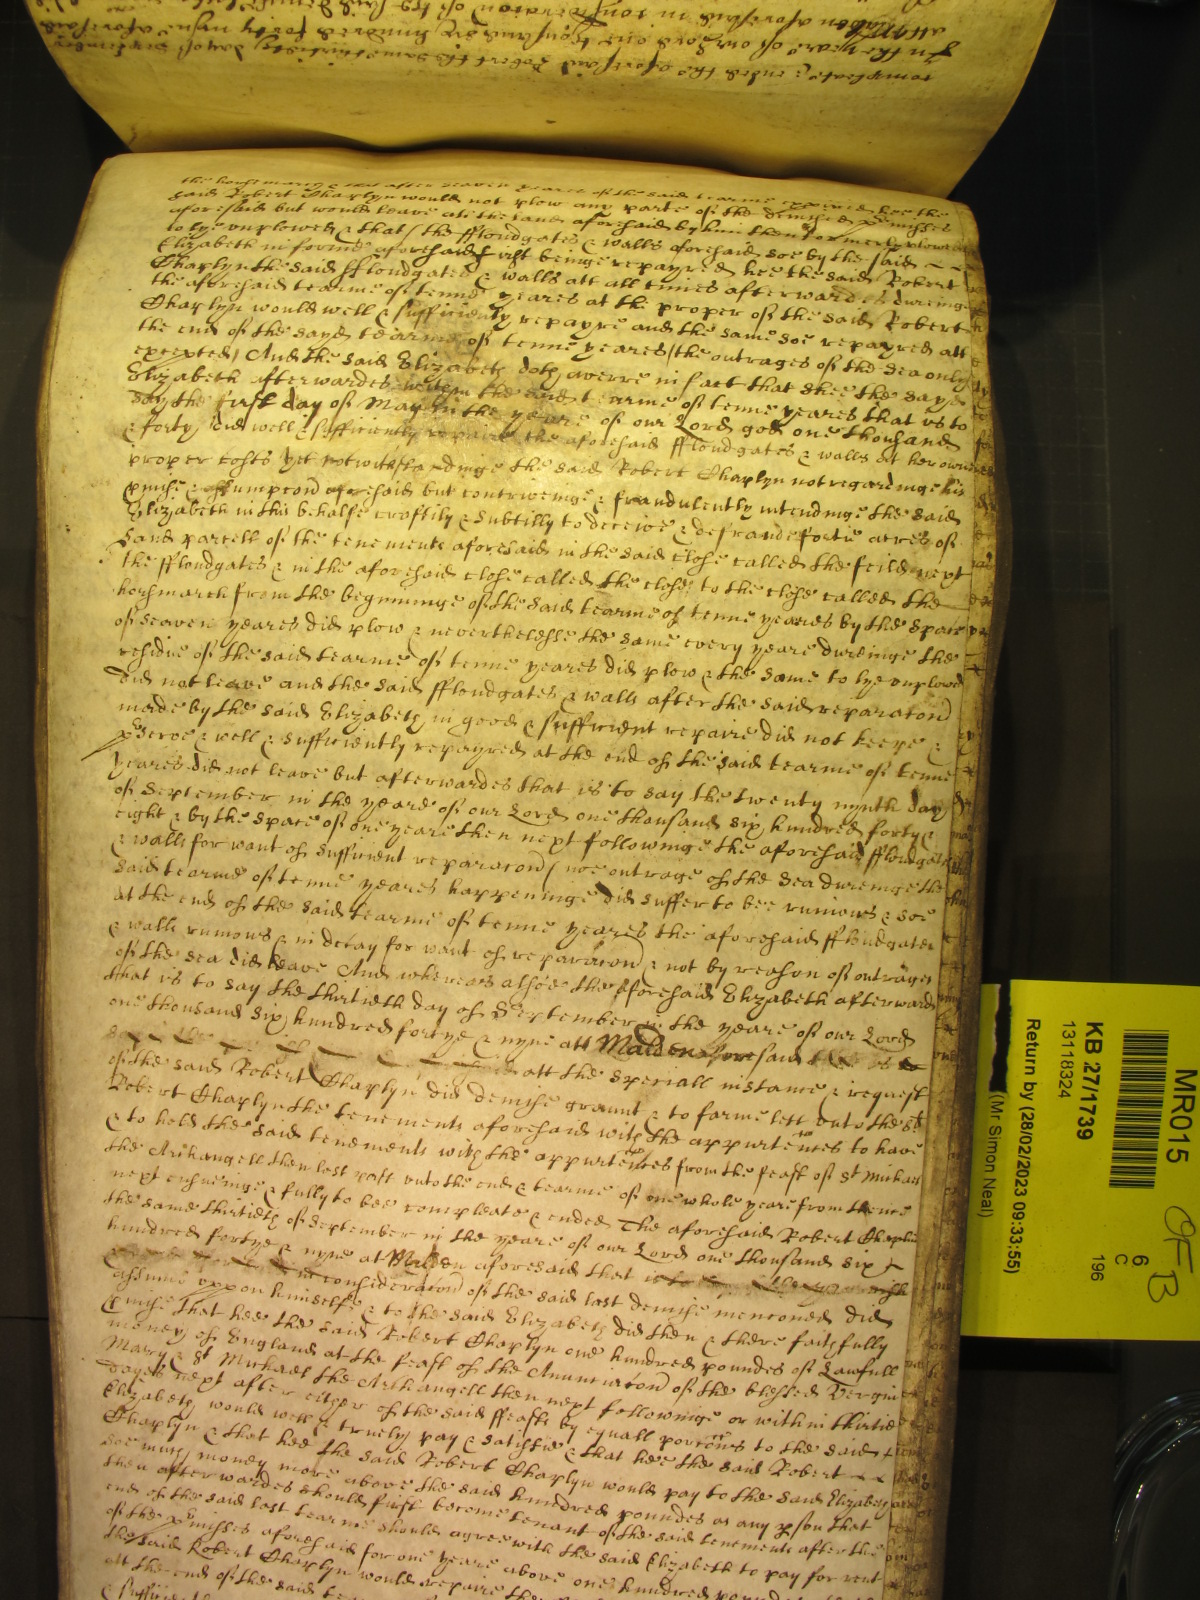 compleate & ended the aforesaid Robert the same thirtieth day of September
In the yeare of our Lord one thousand six hundred forty & nyne aforesaid
att Maldon aforesaid in consideration of the said demise
the horse marsh & that after seaven yeares of the said tearme expired hee the
said Robert Chaplyn would not plow any parte of the demised p'misses
aforesaid but would leave all the land aforesaid by him then formerly plowed
to lye unplowed & that the ffloudgates & walls aforesaid soe by the said
Elizabeth in forme aforesaid first beinge repayred hee the said Robert
Chaplyn the said ffloudgates & walls att all times afterwards dureinge
the aforesaid tearme of tenne yeares at the proper of the said Robert
Chaplyn would well & sufficiently repayre and the same soe repayred att
the end of the sayd tearme of tenne yeares (the outrages of the sea only
excepted) And the said Elizabeth doth averre in fact that shee the sayd
Elizabeth afterwardes within the said tearme of tenne yeares that is to
say the first day of May in the yeare of our Lord god one thousand
& forty did well & sufficiently repaire the aforesaid ffloudgates & walls at her owne
proper costs yet notwithstandinge the said Robert Chaplyn not regardinge his
p'mise & assumpcon aforesaid but contriveinge & fraudulently intendinge the said
Elizabeth in this behalfe craftily & subtilly to deceive & defraude fortie acres of
land parcell of the tenements aforesaid in the said close called the feild next
the ffloudgates & in the aforesaid close called the close to the close called the
horsmarch from the beginninge of the said tearme of tenne yeares by the space
of seaven yeares did plow & neverthelesse the same every yeare dureinge the
residue of the said tearme of tenne yeares did plow & the same to lye unplowed
did not leave and the said ffloudgates & walls after the said reparacon
made by the said Elizabeth in good & sufficient repaire did not keepe &
p'serve & well & sufficiently repayred at the end of the said tearme of tenne
yeares did not leave but afterwardes that is to say the twenty nynth day
of September in the yeare of our Lord one thousand six hundred forty &
eight & by the space of one yeare then next followinge the aforesaid ffloudgates
& walls for want of sufficient reparacon (noe outrage of the sea dureinge the
said tearme of tenne yeares happeninge) did suffer to bee ruinous & soe
at the end of the said tearme of tenne yeares the aforesaid ffloudgates
& walls ruinous & in decay for want of reparacon & not by reason of outrages
of the sea did leave And whereas alsoe the aforesaid Elizabeth afterwards
that is to say the thirtieth day of September in the yeare of our Lord
one thousand six hundred fortye & nyne att Maldon aforesaid
att the speciall instance & request
of the said Robert Chaplyn did demise graunt & to farme lett unto the sd
Robert Chaplyn the tenements aforesaid with the appurtences to have
& to hold the said tenements with the appurtences from the feast of St Michaell
the Archangell then last past unto the end & tearme of one whole yeare from thence
next ensueinge & fully to bee compleate & ended The aforesaid Robert Chaplin
the same thirtieth of September in the yeare of our Lord one thousand six
hundred fortye & nyne at Maldon aforesaid that
in consideracon of the said last demise mentioned did
assume uppon himselfe & to the said Elizabeth did then & there faithfully
p'mise that hee the said Robert Chaplyn one hundred poundes of Lawfull
money of England at the feast of the Annunciacon of the blessed Vergin
Mary & St Michael the Archangell then next followinge or within thirtie
dayes next after either of the said ffeasts by equall porcons to the said
Elizabeth would well & truely pay & satisfie & that hee the said Robert
Chaplyn & that hee the said Robert Chaplyn would pay to the said Elizabeth
soe much money more above the said hundred poundes as any p'son that
then afterwardes should first become tenant of the said tenements after the
end of the said last tearme should agree with the said Elizabeth to pay for rent
of the p'misses aforesaid for one yeare above one hundred
the said Robert Chaplyn would repaire the
att the end of the said
& sufficient
MR015
KB 27/1739
13118324
Return by (28/02/2023 09:33:55)
(Mr Simon Neal)
6
C
196
OFB